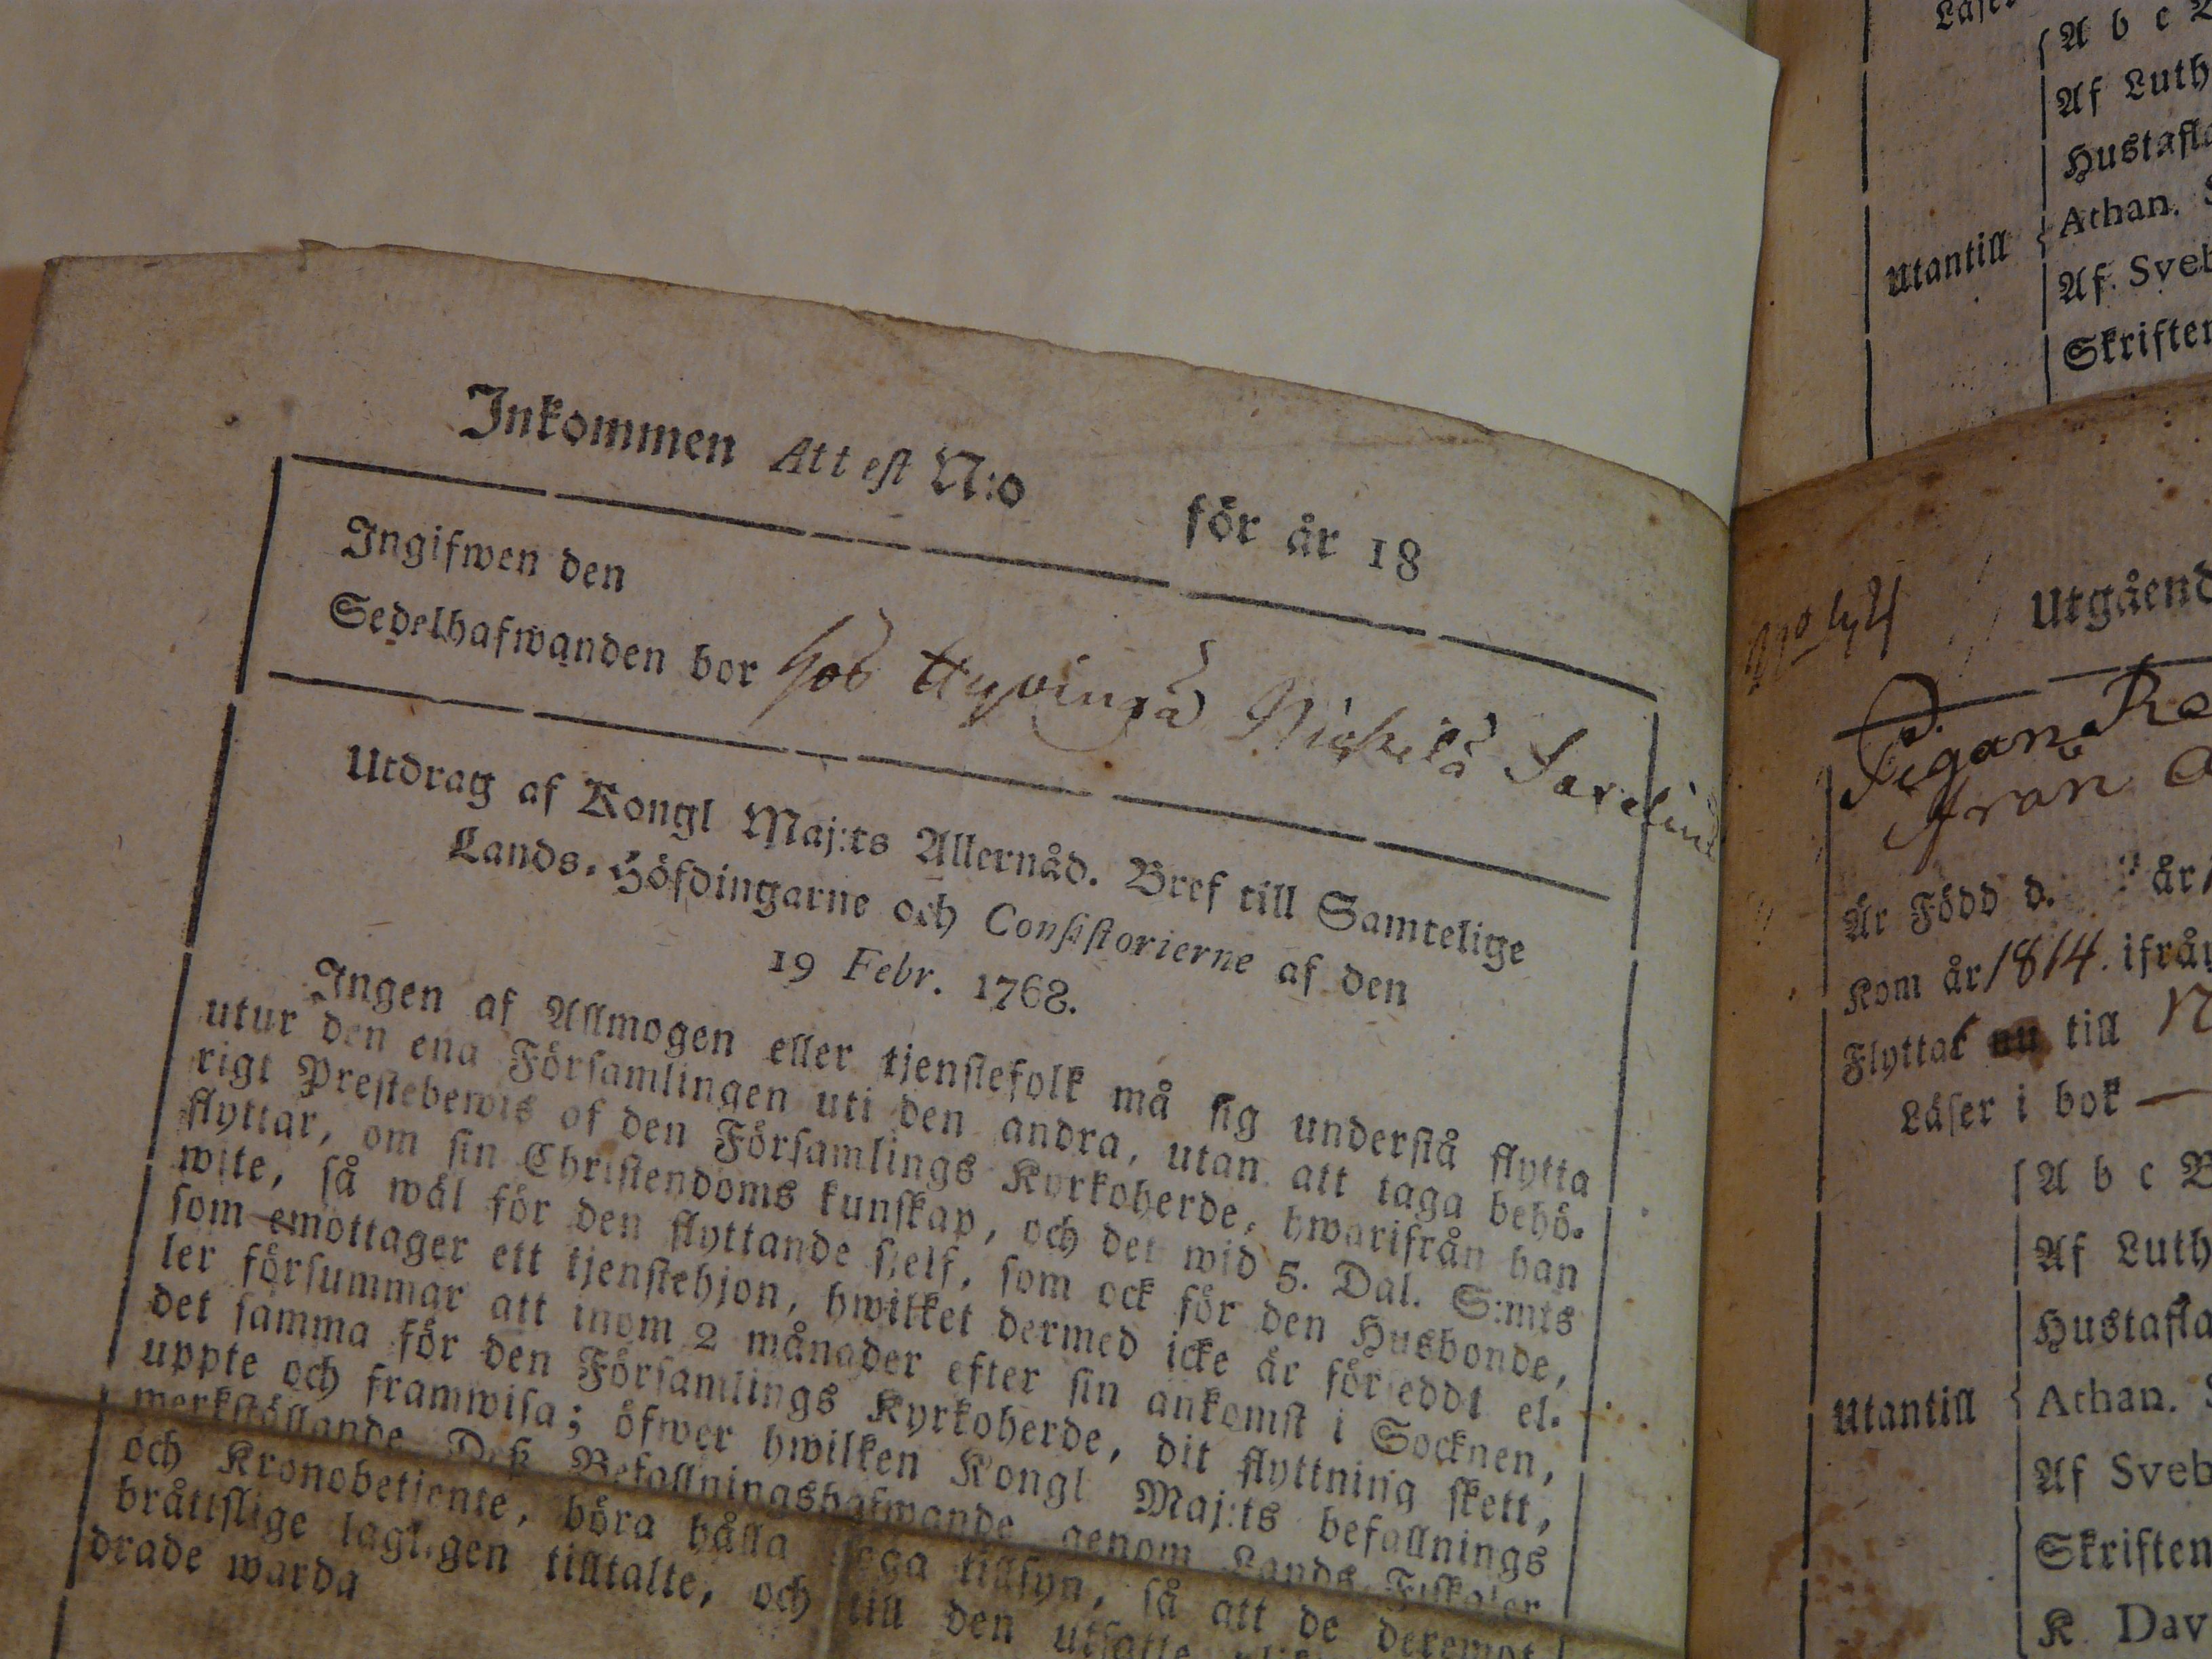 Inkommen Attest N:o för år 18
Ingifwen den
Sedelhafwanden bor hos Hyvingå Nickilå
Utdrag af Kongl Maj:ts Allernåd. Bref till Samtelige
Lands-Höfdingarne och Consistorierne af den
19 Febr. 1768.
Ingen af Allmogen eller tjenstefolk må sig understå flytta
utur den ena Församlingen uti den andra, utan att taga behö-
rigt Prestebewis of den Församlings Kyrkoherde, hwarifrån han
flyttar, om sin Christendoms kunskap, och det wid 5. Dal. S:mts
wite, så wäl för den flyttande sjelf, som ock för den Husbonde,
som emottager ett tjenstehjon, hwilket dermed icke är förseddt el-
ler försummar att inom 2 månader efter sin ankomst i Socknen,
det samma för den Församlings Kyrkoherde, dit flyttning skett,
uppte och framwisa; öfwer hwilken Kongl Maj:ts befallnings
werkställande Deß Befallningshafwande genom Lands-Fiskaler
och Kronobetjente, böra hålla noga tillsyn, så att de deremot
bråttslige lagligen tilltalte, och till den utsatte
drade warda
Läser
A b c
Af Luth
Hustafla
Athan.
Utantill
Af Sveb
Skriften
Utgåend
Pigan
från
Är Född d. år
Kom år 1814. ifrån
Flyttat nu till
Läser i bok
A b c B
Af Luth
Hustafla
Utantill
Athan.
Af Sveb
Skriften
K Dav